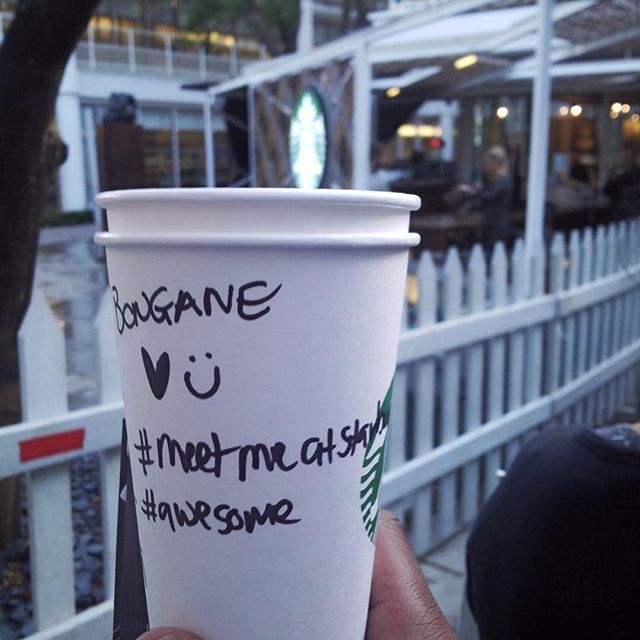 BONGANE
#meet me at starbu
#awesome